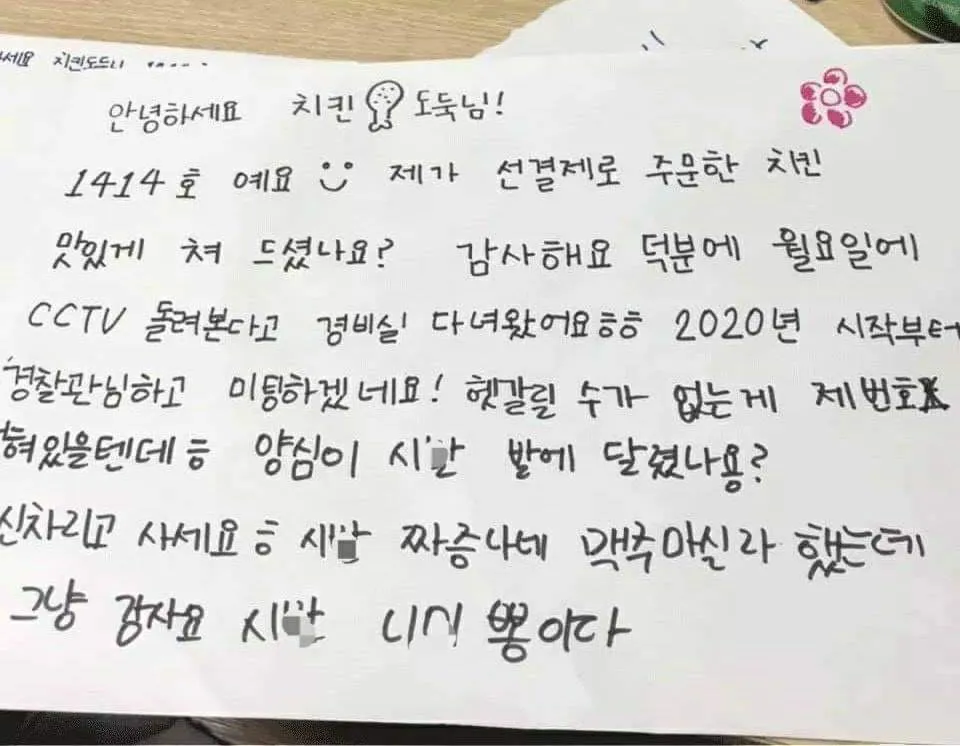 세요 치킨도드니 .....
안녕하세요 치킨 도둑님!
1414호 예요 제가 선결제로 주문한 치킨
맛있게 쳐 드셨나요? 감사해요 덕분에 월요일에
CCTV 돌려본다고 경비실 다녀왔어요ㅎㅎ 2020년 시작부터
경찰관님하고 미팅하겠네요! 헷갈릴 수가 없는게 제번호
혀있을텐데ㅎ 양심이 발에 달렸나용?
신차리고 사세요ㅎ 짜증나네 맥주마실라 했는데
그냥 감자요 뽕이다